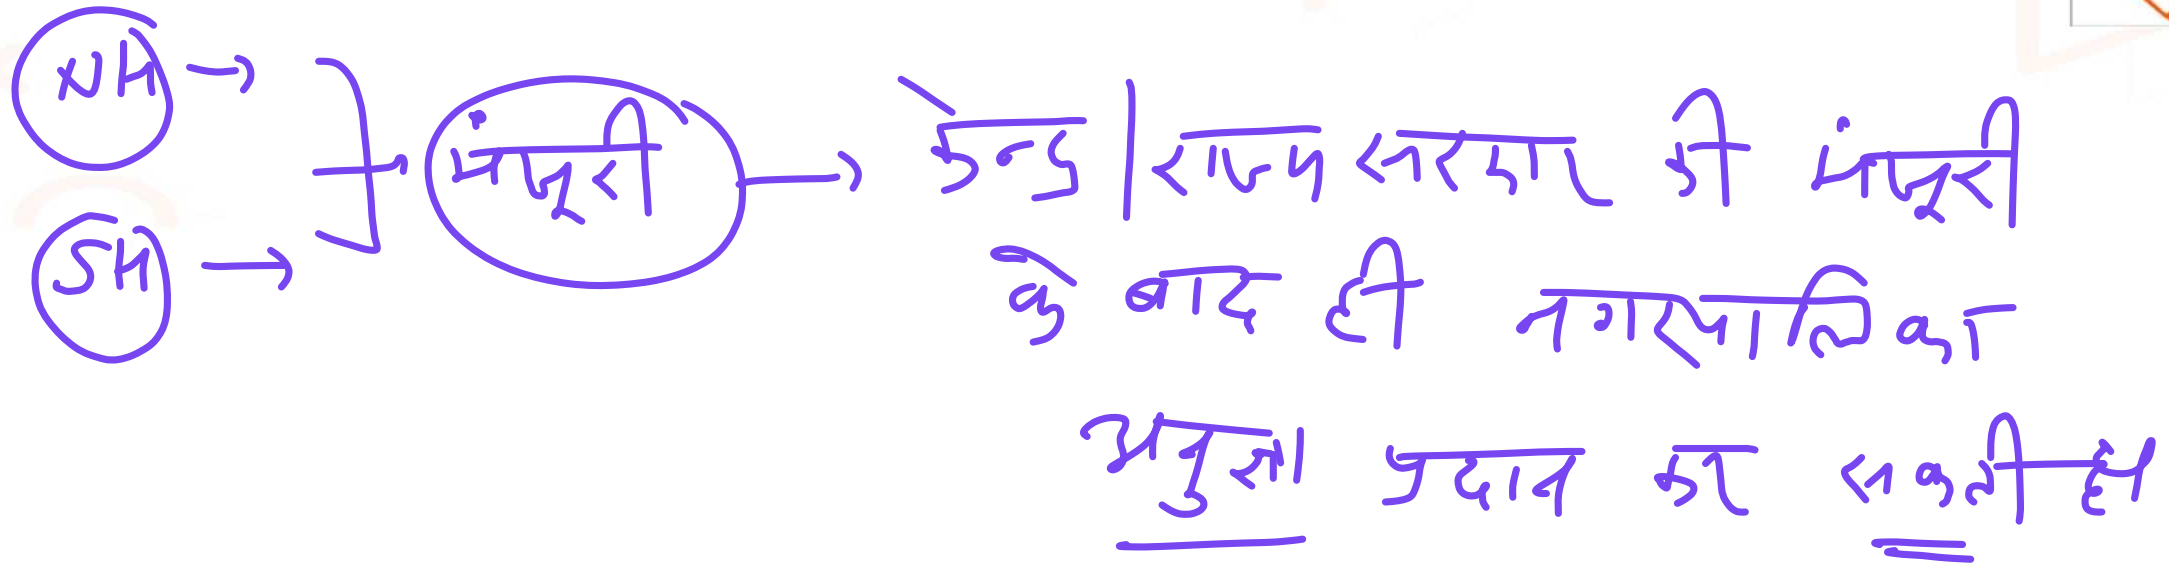 NH → मंजूरी → केन्द्र | राज्य सरकार की मंजूरी
SH → के बाद ही नगरपालिका
अनुज्ञा प्रदान कर सकती है।